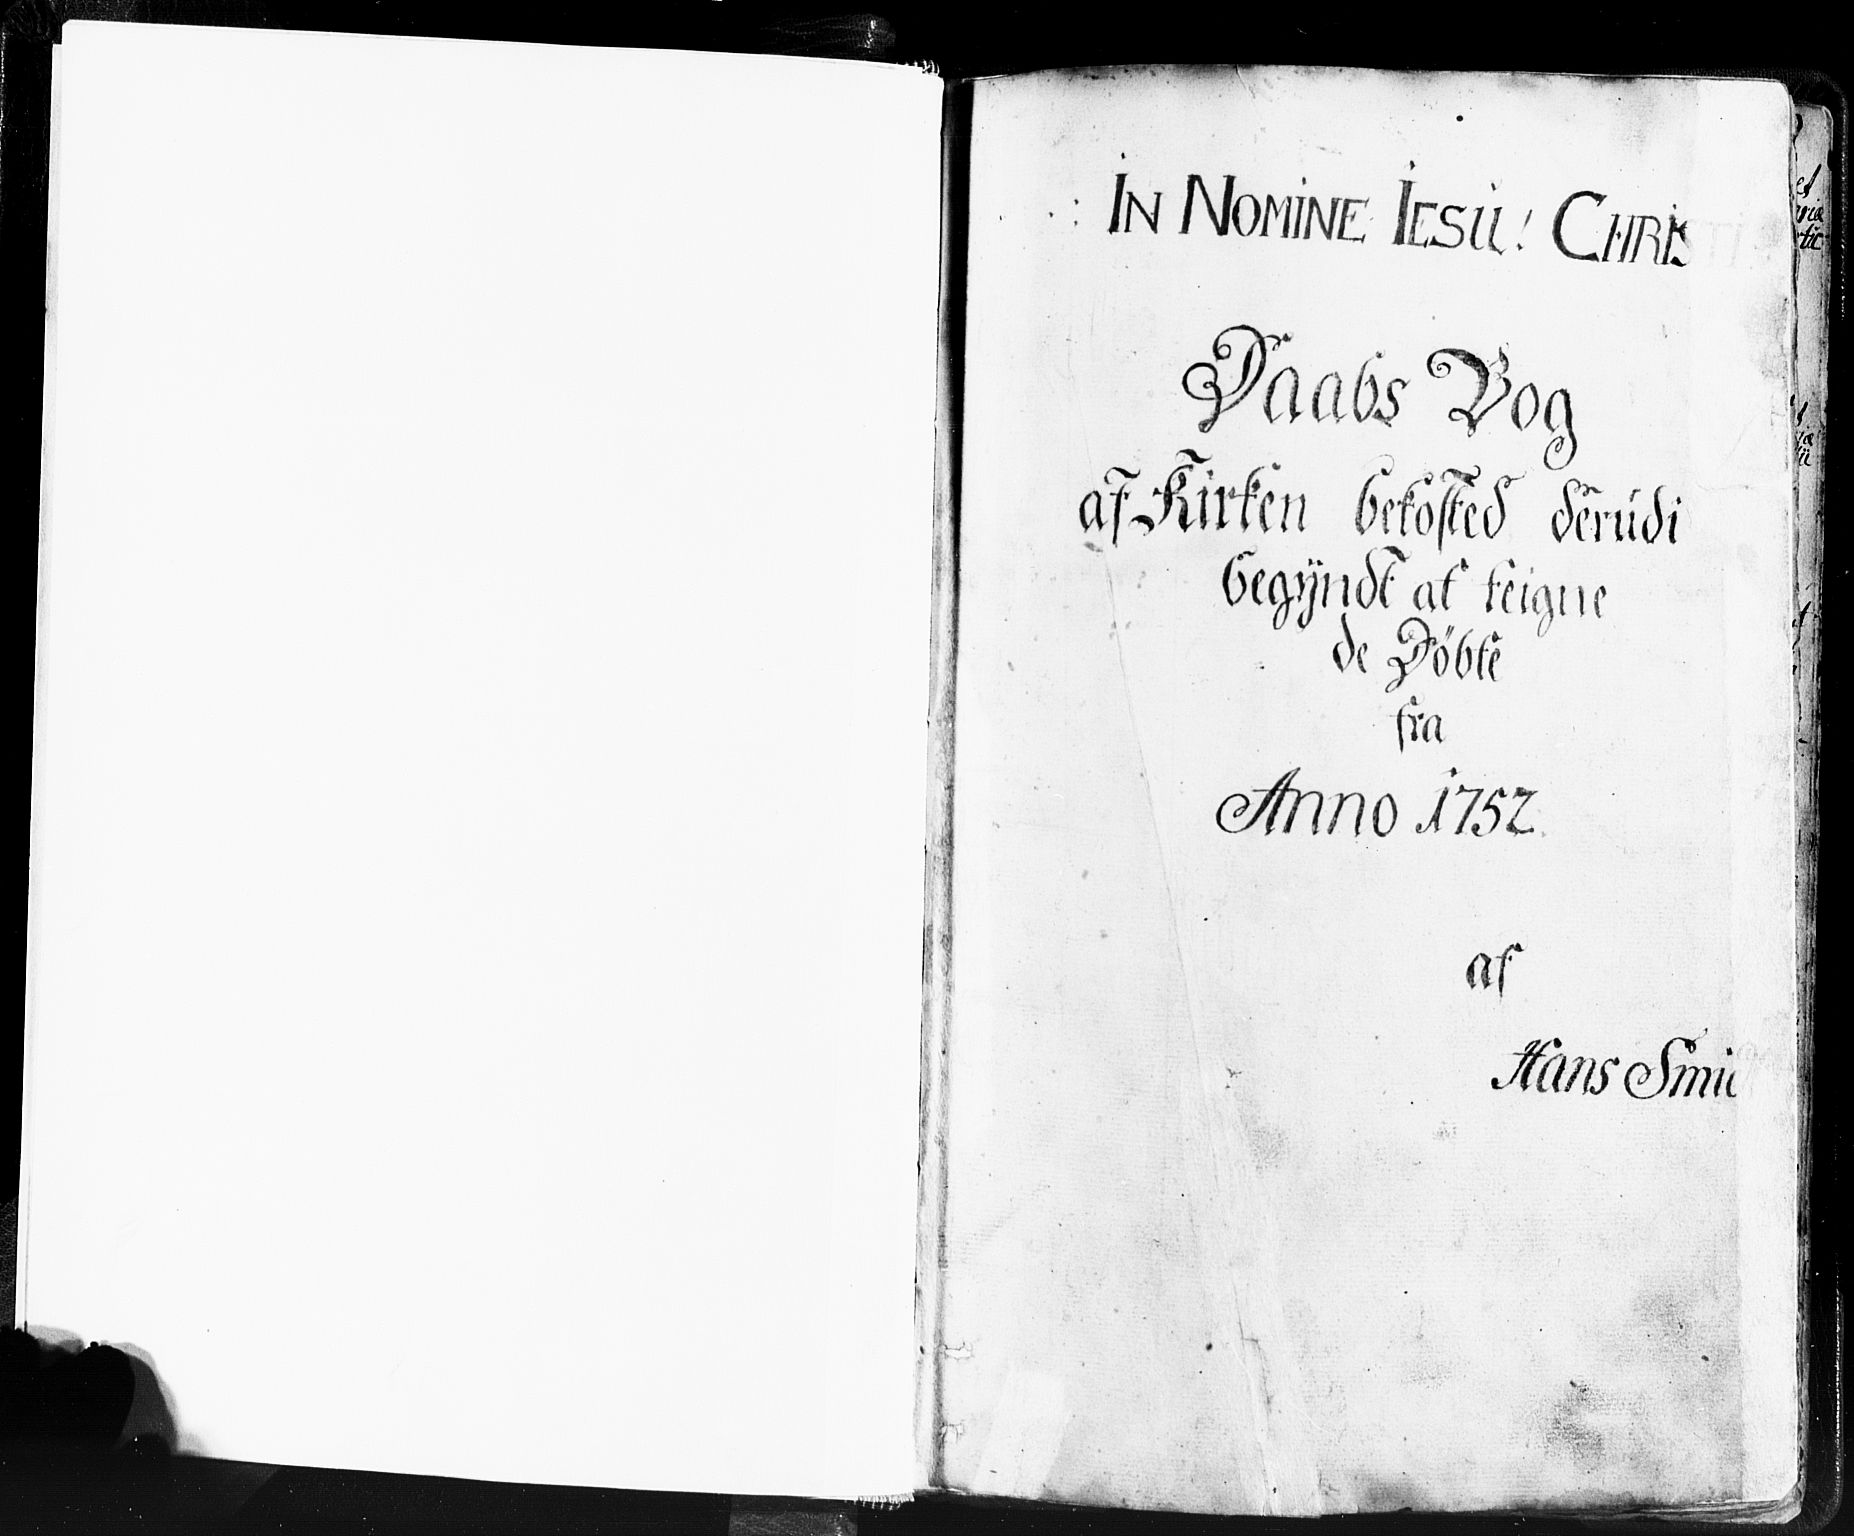 .: IN NOMINE IESU! CHRISTI
Daabs Bog
af Kirken bekosted derudi
begyndt at teigne
de Döbte
fra
Anno 1752.
af
Hans Smid